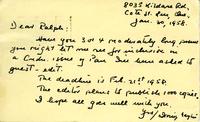 8035 Kildare Rd.
Cote St. Luc, Que.
Jan. 30, 1958.
Dear Ralph:
Have you 3 or 4 moderately long poems
you might let me see for inclusion in
a Cndn. issue of I've been asked to
guest-edit.
The deadline is Feb. 21st 1958.
The editor plans to publish 1000 copies.
I hope all goes well with you.
Yrs/ Irving Layton